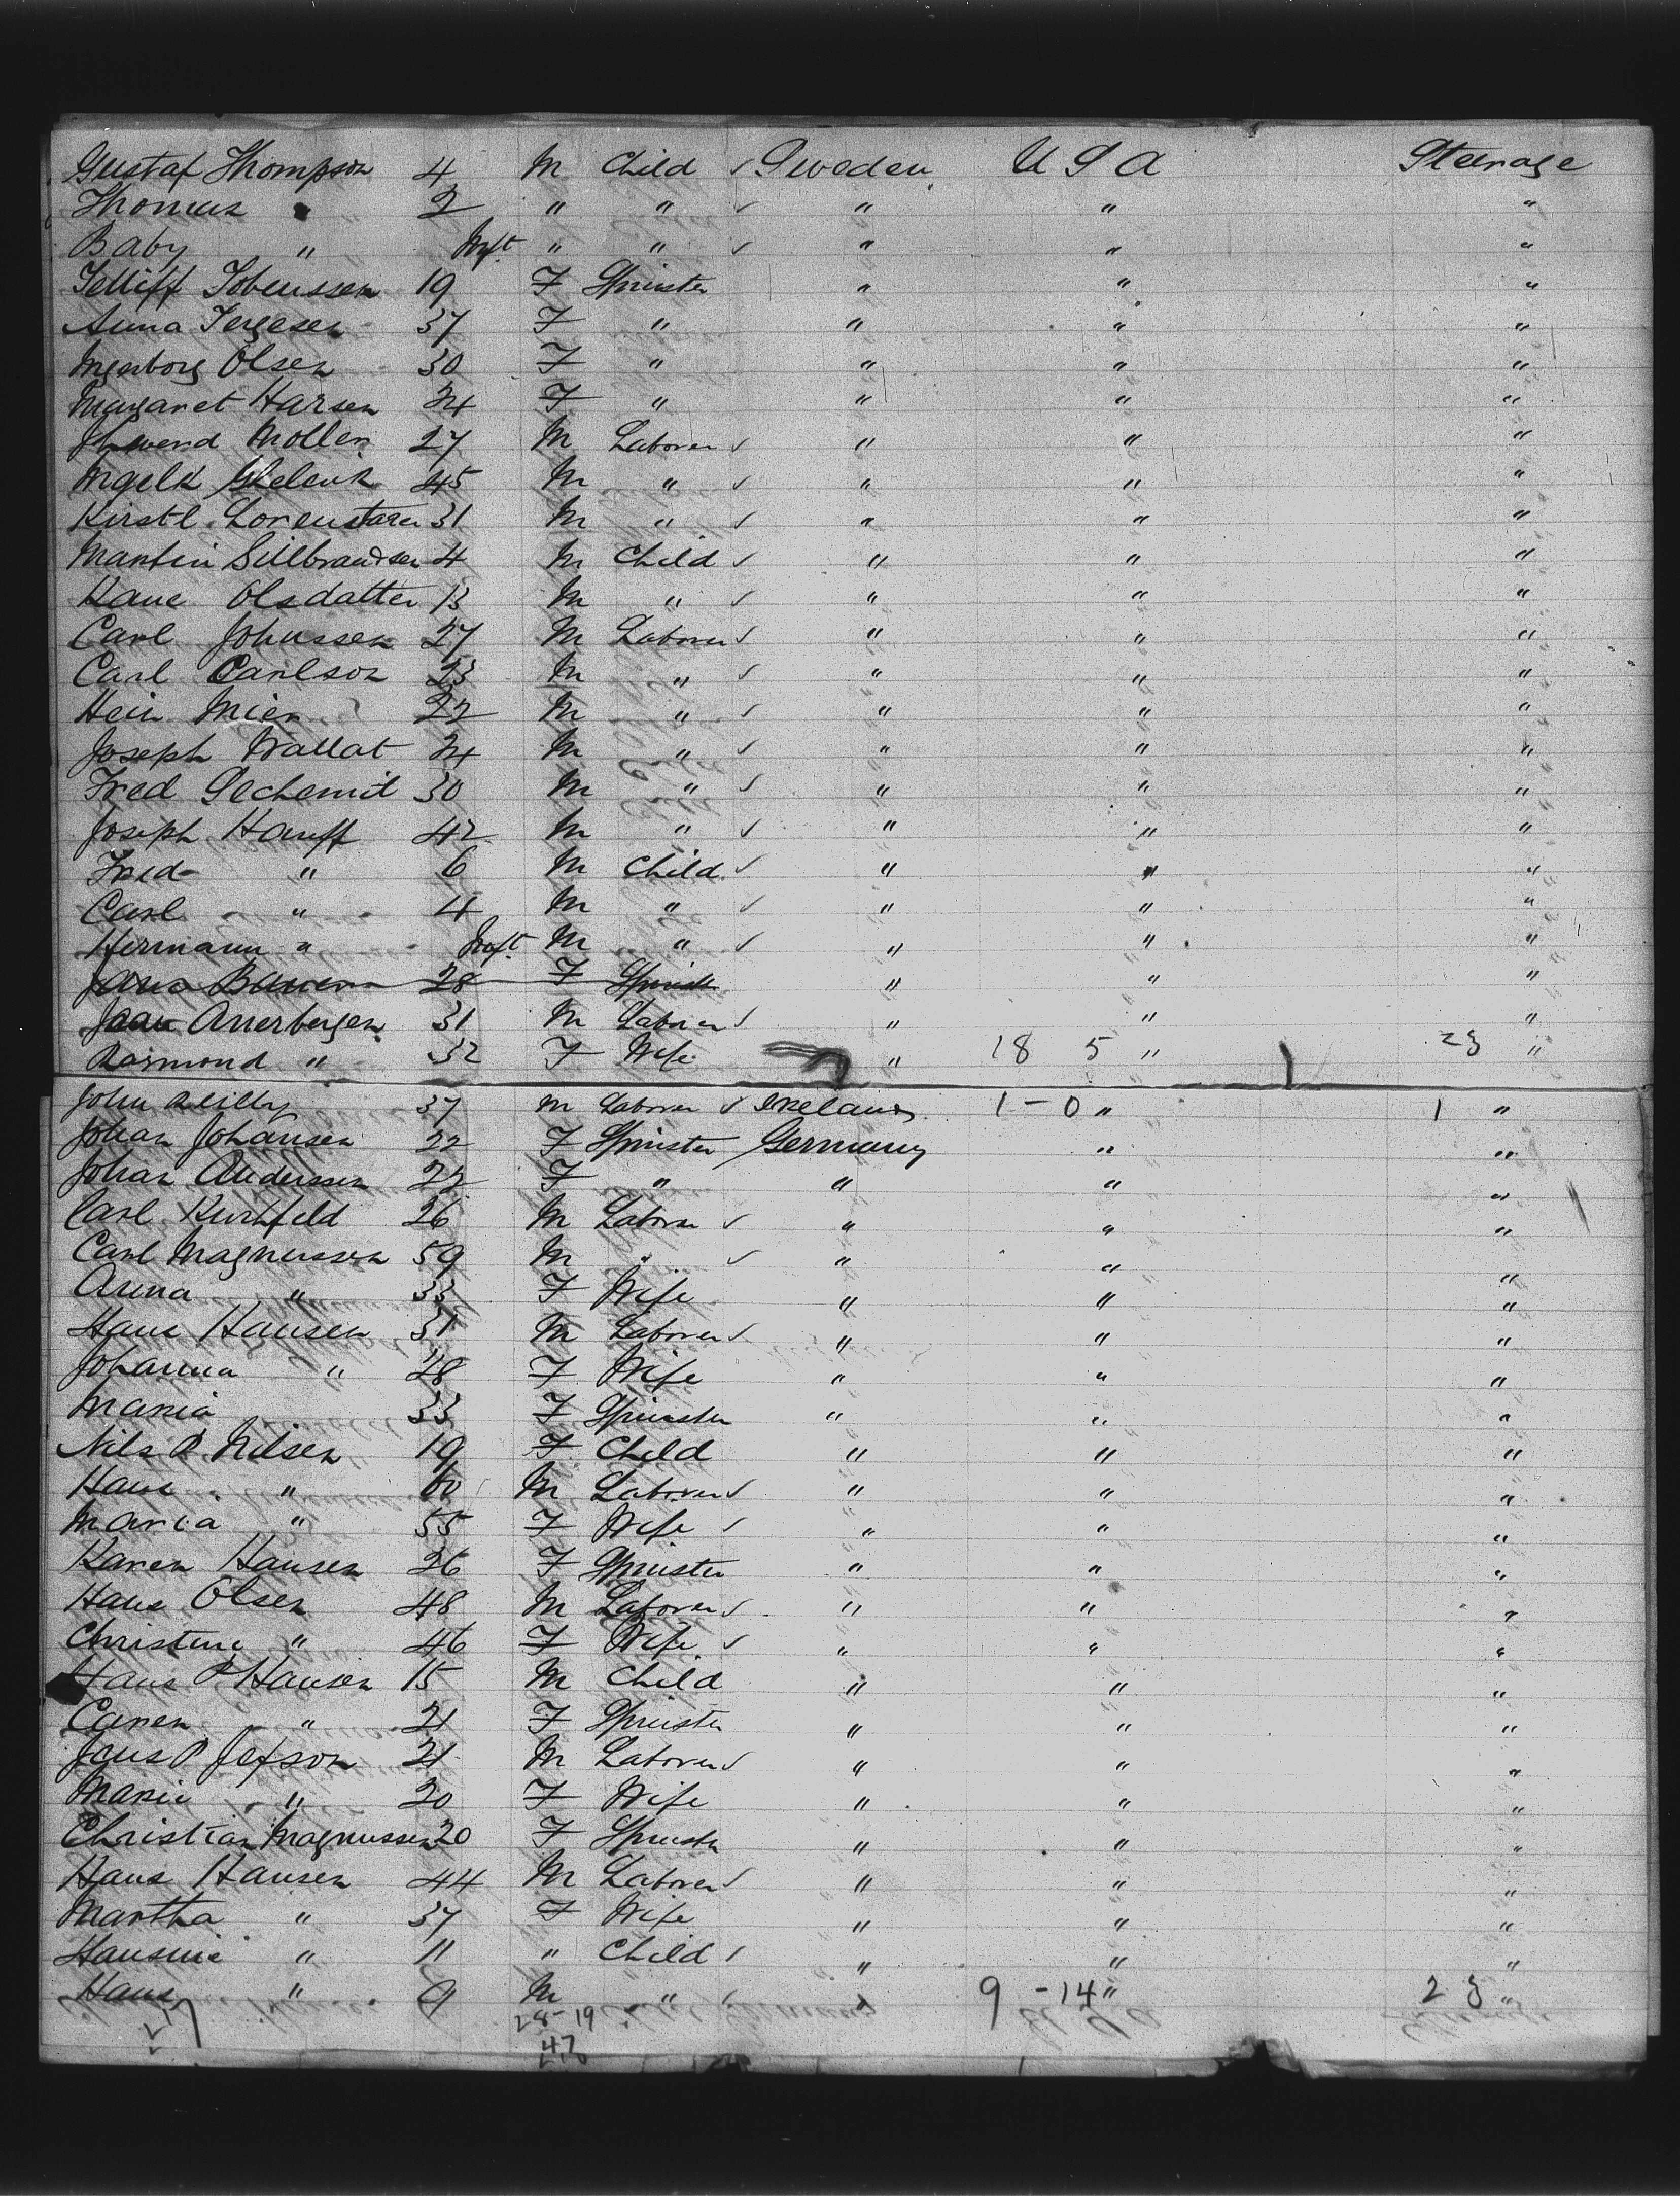 Gustaf Thompson 4 M Child ✓ Sweden U S A Steerage
Thomas " 2 " " ✓ " " "
Baby " Inft. " " ✓ " " "
19 F Spinster " " "
Anna 37 F " " " "
Ingerborg Olsen 30 F " " " "
Margaret Hansen 24 F " " " "
Moller 27 M Laborer ✓ " " "
45 M " ✓ " " "
Kirstl. 31 M " ✓ " " "
Martin 4 M Child ✓ " " "
Kane Olsdatter 13 M " ✓ " " "
Carl Johnssen 27 M Laborer ✓ " " "
Carl Carlson 23 M " ✓ " " "
Hein Mier 22 M " ✓ " " "
Joseph Wallat 24 M " ✓ " " "
Fred Schemit 30 M " ✓ " " "
Joseph Hauff 42 M " ✓ " " "
Fred " 6 M Child ✓ " " "
Carl " 4 M " ✓ " " "
Hermann " Inft. M " ✓ " " "
28 F Spinster " " "
31 M Laborer ✓ " " "
Rasmond " 32 F Wife " 18 5 " 23 "
John Reilly 37 M Laborer ✓ Ireland 1-0 " 1 "
Johan Johansen 22 F Spinster Germany " "
Johan Anderssen 22 F " " " "
Carl Kirchfeld 26 M Laborer ✓ " " "
Carl Magnussen 59 M " ✓ " " "
Anna " 33 F Wife " " "
Hans Hansen 31 M Laborer ✓ " " "
Johanna " 28 F Wife " " "
Maria 33 F Spinster " " "
Nils P. Nilsen 19 F Child " " "
Hans " 60 M Laborer ✓ " " "
Maria " 55 F Wife ✓ " " "
Karen Hansen 26 F Spinster " " "
Hans Olsen 48 M Laborer ✓ " " "
Christine " 46 F Wife ✓ " " "
Hans P Hansen 15 M Child " " "
Caren " 21 F Spinster " " "
Jens P Jepson 21 M Laborer ✓ " " "
Marie " 20 F Wife " " "
Christian Magnussen 20 F Spinster " " "
Hans Hansen 44 M Laborer ✓ " " "
Martha " 37 F Wife " " "
Hansine " 11 " Child ✓ " " "
Hans " 9 M " ✓ " 9 -14 " 23 "
28-19
47